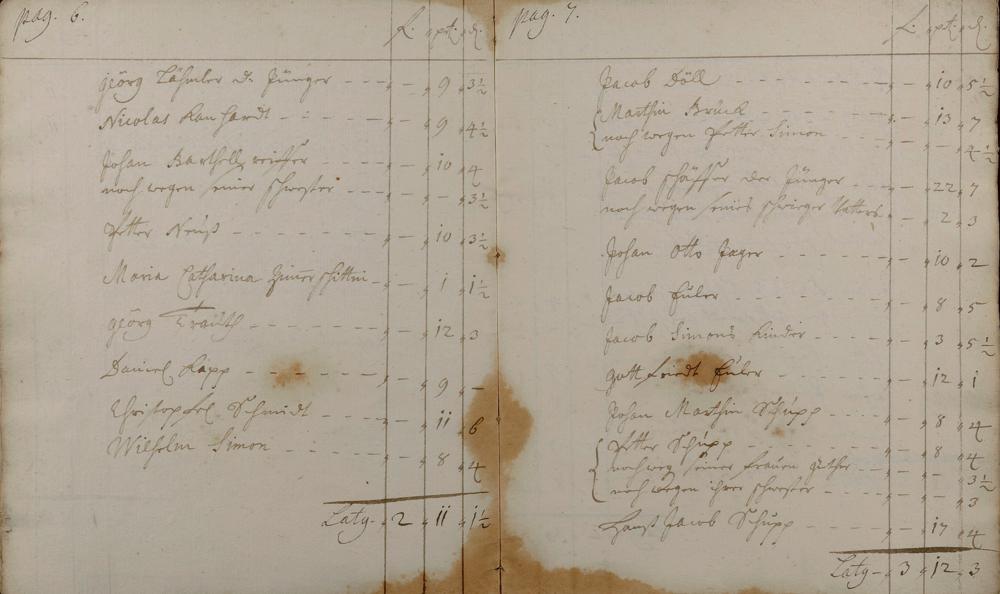 pag. 6.
f. bz. d.
Jeörg Lähmler d. Jünger — 9 3½
Nicolas Ranhardt — 9 4½
Johan Barthell — 10 4
noch wegen seiner schwester — — 3½
Petter Neuß — 10 3½
Maria Catharina — 1 1½
Georg Trauth — 12 3
Daniel Rapp — 9 —
Christoffel Schmidt — 11 6
Wilhelm Simon — 8 4
Latg. 2 11 1½
pag. 7.
f. bz. d.
Jacob Döll — 10 5½
Marthin Bruck — 13 7
noch wegen Petter Simon — — 4½
Jacob schäffer der Jünger — 22 7
noch wegen seines schwieger Vatters — 2 3
Johan Otto Jager — 10 2
Jacob Euler — 8 5
Jacob Simons Kinder — 3 5½
Gottfriedt Euler — 12 1
Johan Marthin Schupp — 8 4
Petter Schupp — 8 4
noch weg. seiner frauen güther — — 3½
noch wegen ihrer schwester — — 3
Hanß Jacob Schupp — 17 4
Latg — 3 12 3